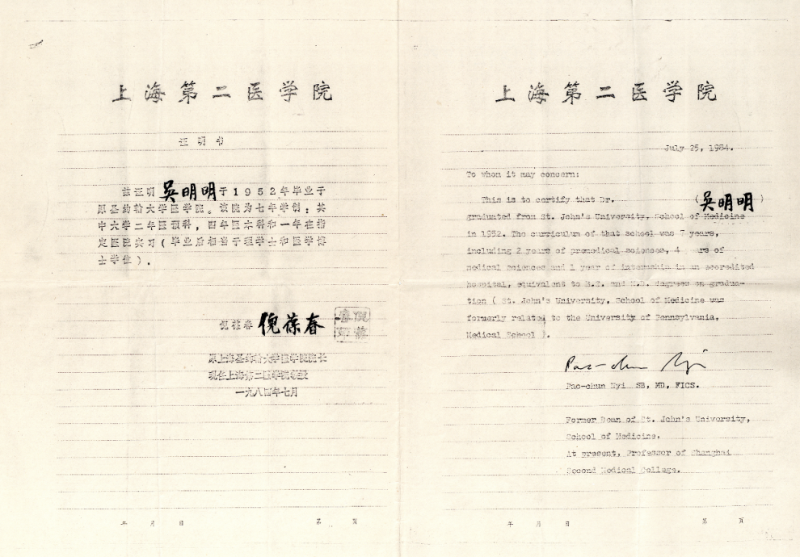 上海第二医学院
证明书
兹证明吴明明于1952年毕业于
原圣约翰大学医学院。该院为七年学制：其
中大学二年预科，四年医本科和一年在指
定医院实习（毕业后相当于理学士和医学博
士学位）。
倪葆春 倪葆春
原上海圣约翰大学医学院院长
现任上海第二医学院教授
一九八四年七月
年 月 日 第 页
上海第二医学院
July 25, 1984.
To whom it may concern:
This is to certify that Dr. (吴明明)
graduated from St. John's University, School of Medicine
in 1952. The curriculum of that school was 7 years,
including 2 years of premedical sciences, 4 ars of
medical sciences and 1 year of internship in an accredited
hospital, equivalent to B.S. and M.D. degrees on gradua-
tion ( St. John's University, School of Medicine was
formerly related to the University of Pennsylvania,
Medical School ).
Pao-chun Nyi
Pao-chun Nyi SB, MD, FICS.
Former Dean of St. John's University,
School of Medicine.
At present, Professor of Shanghai
Second Medical College.
年 月 日 第 页